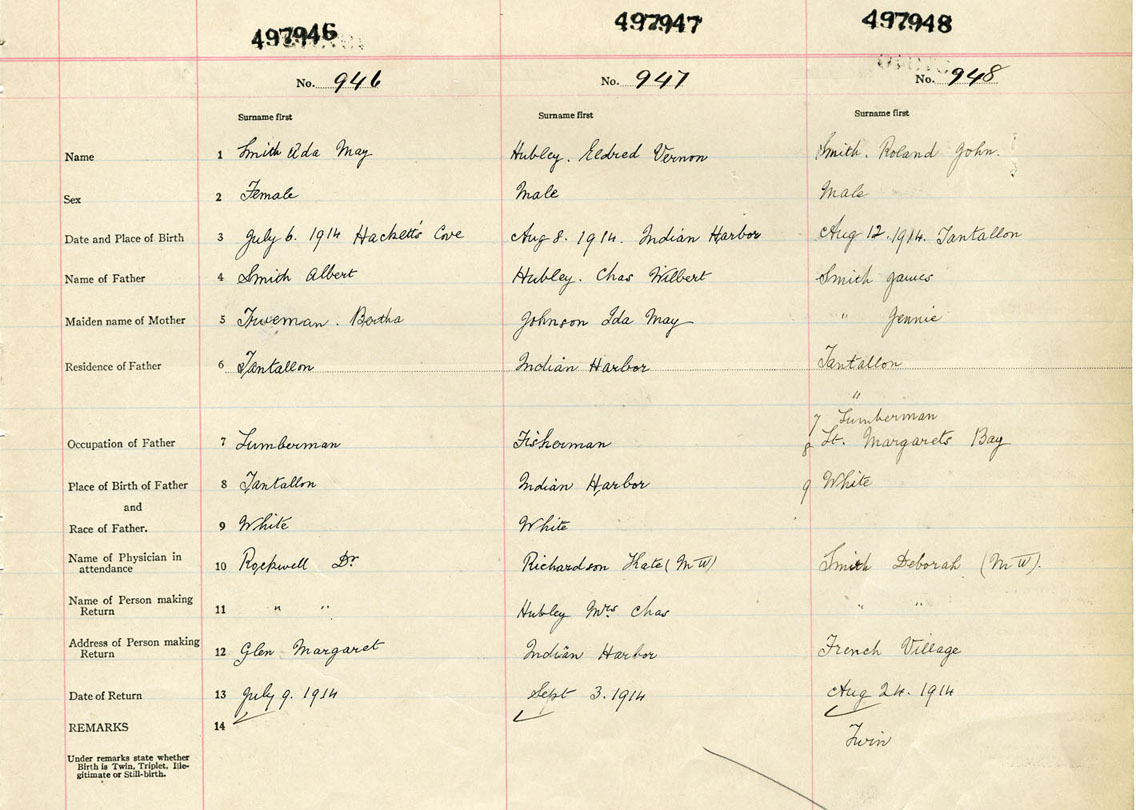 497946 497947 497948
No. 946 No. 947 No. 948
Surname first Surname first Surname first
Name 1 Smith Ada May Hubley. Eldred Vernon Smith. Roland John.
Sex 2 Female Male Male
Date and Place of Birth 3 July 6. 1914 Hackett's Cove Aug 8. 1914. Indian Harbor Aug 12. 1914. Tantallon
Name of Father 4 Smith Albert Hubley. Chas Wilbert Smith James
Maiden name of Mother 5 Bertha Johnson Ida May " Jennie
Residence of Father 6 Tantallon Indian Harbor Tantallon
"
7 Lumberman
Occupation of Father 7 Lumberman Fisherman 8 St. Margarets Bay
Place of Birth of Father 8 Tantallon Indian Harbor 9 White
and
Race of Father. 9 White White
Name of Physician in attendance 10 Rockwell Dr Richardson Kate (M W) Smith Deborah (M W).
Name of Person making Return 11 " " Hubley Mrs Chas " "
Address of Person making Return 12 Glen Margaret Indian Harbor French Village
Date of Return 13 July 9. 1914 Sept 3. 1914 Aug 24. 1914
REMARKS 14 Twin
Under remarks state whether
Birth is Twin, Triplet, Ille-
gitimate or Still-birth.